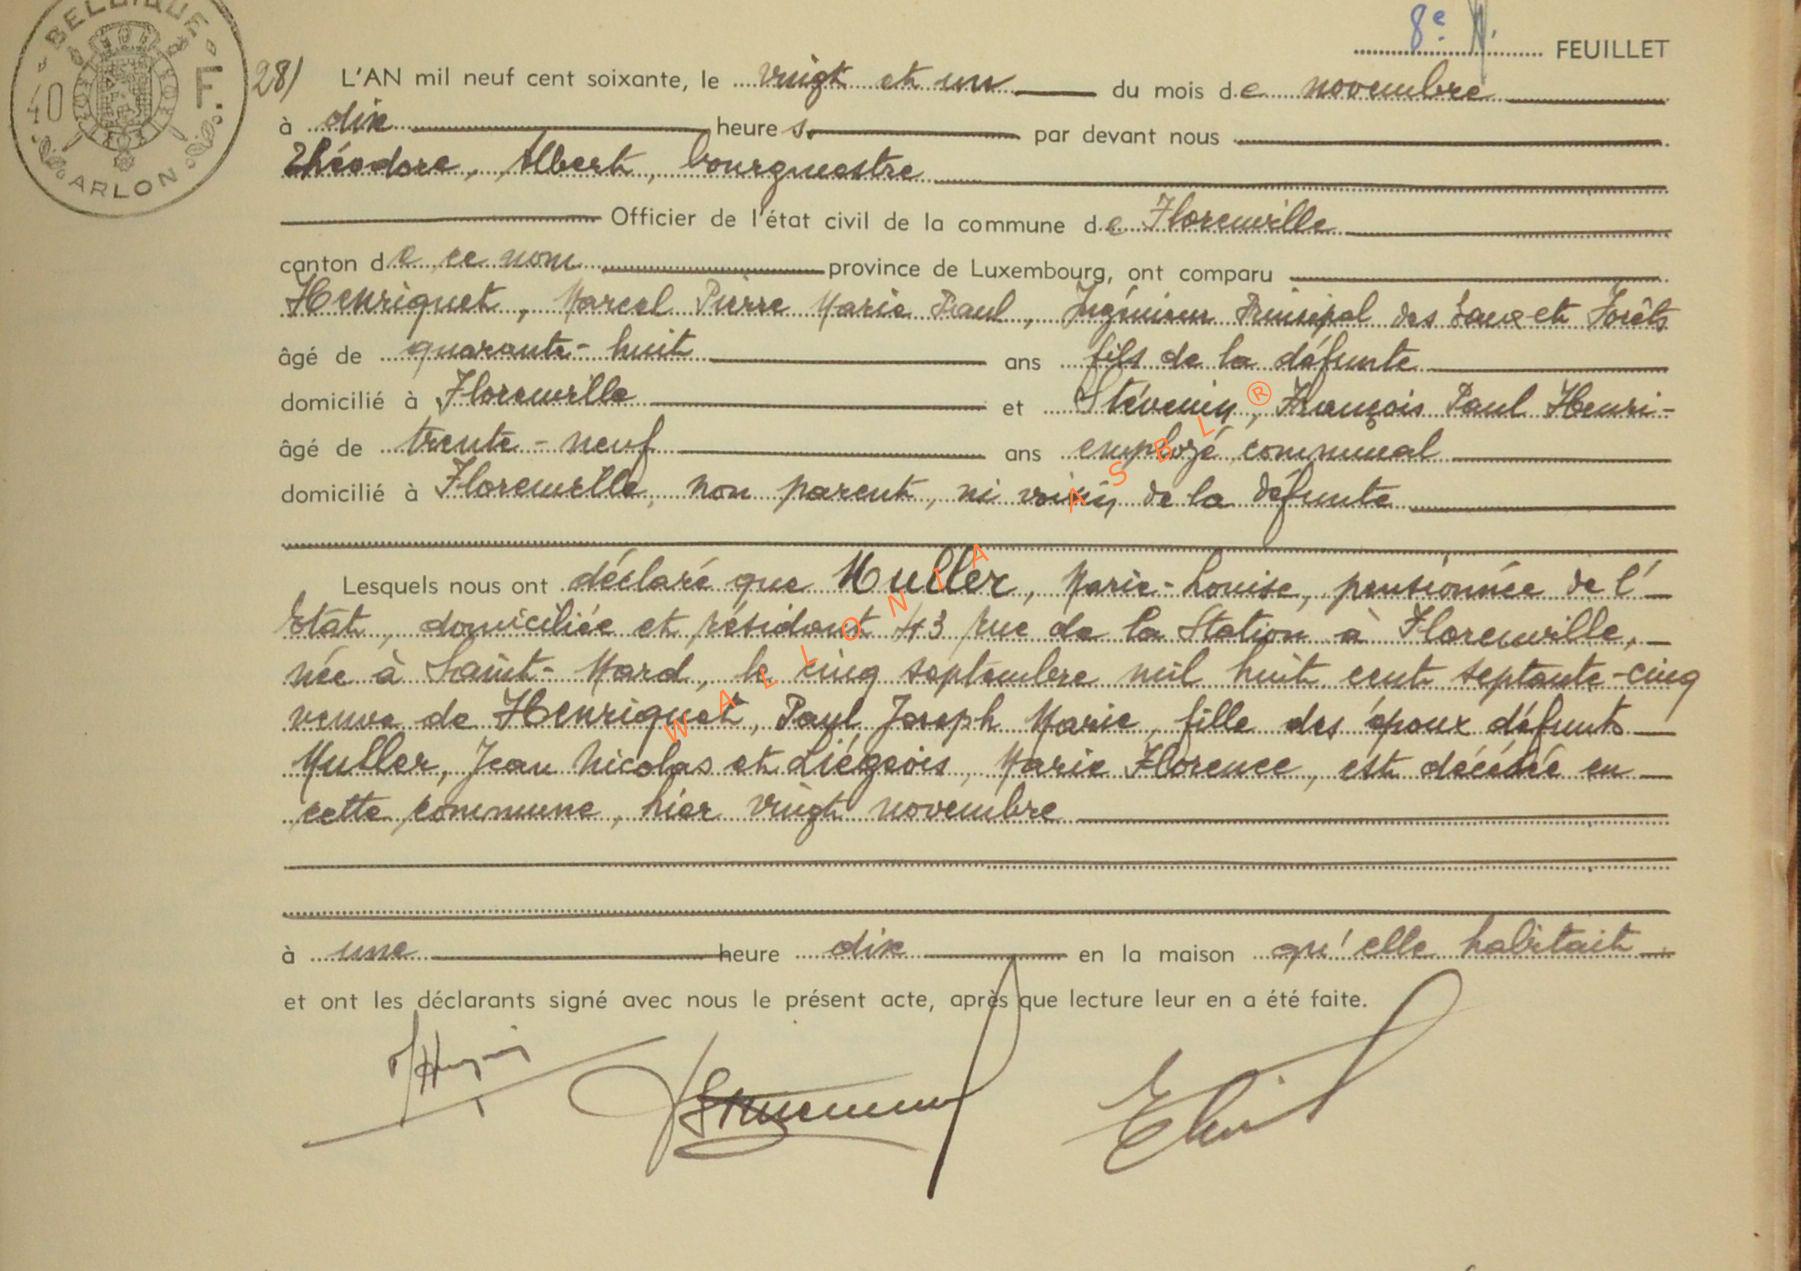 8e
FEUILLET
BELGIQUE
40 F.
ARLON
28) L'AN mil neuf cent soixante, le vingt et un du mois de novembre
à dix heures par devant nous
Théodore, Albert, bourgmestre
Officier de l'état civil de la commune de Florenville
canton de ce nom province de Luxembourg, ont comparu
Henriquet, Marcel Pierre Marie Paul, Ingénieur Principal des Eaux et Forêts
âgé de quarante-huit ans fils de la défunte
domicilié à Florenville et Stévenin, François Paul Henri-
âgé de trente-neuf ans employé communal
domicilié à Florenville, non parent, ni voisin de la défunte
Lesquels nous ont déclaré que Muller, Marie-Louise, pensionnée de l'
Etat, domiciliée et résidant 43 rue de la Station à Florenville,
née à Saint-Mard, le cinq septembre mil huit cent septante-cinq
veuve de Henriquet, Paul Joseph Marie, fille des époux défunts
Muller, Jean Nicolas et Liégeois, Marie Florence, est décédée en
cette commune, hier vingt novembre
à une heure dix en la maison qu'elle habitait
et ont les déclarants signé avec nous le présent acte, après que lecture leur en a été faite.
WALLONIA ASBL ®